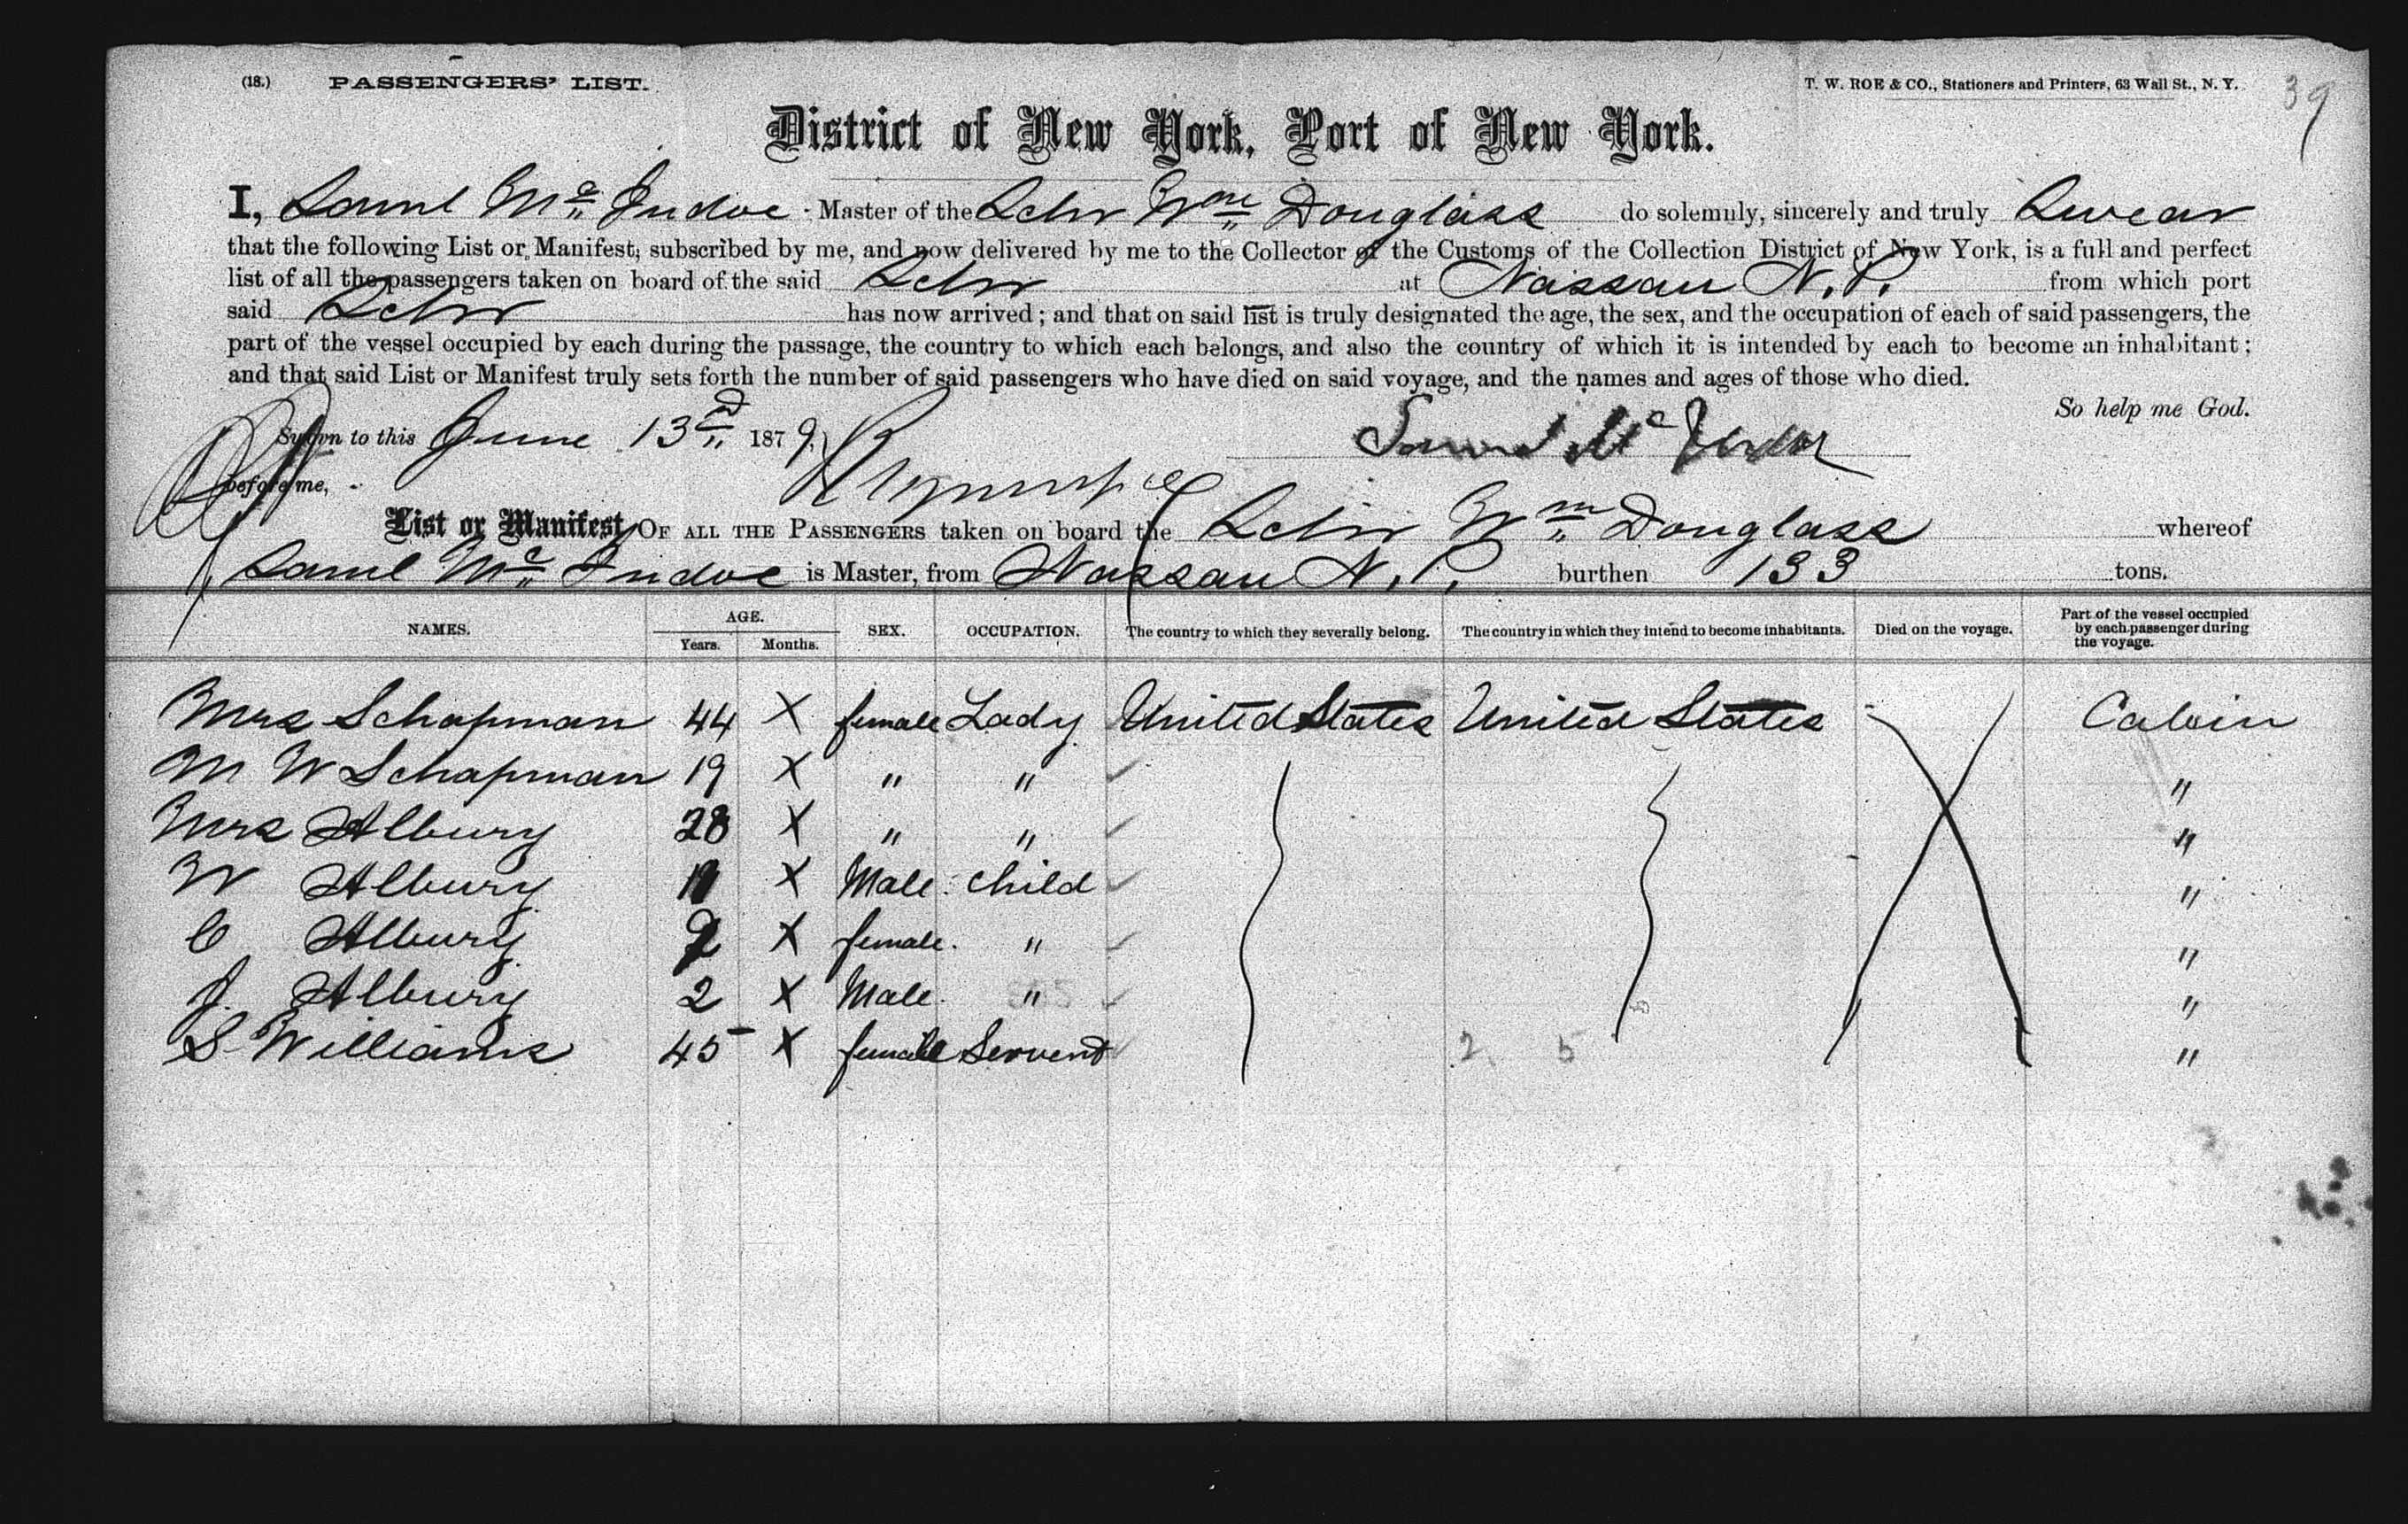 (18.) PASSENGERS' LIST. T. W. ROE & CO., Stationers and Printers, 63 Wall St., N. Y. 39
District of New York, Port of New York.
I, Saml Mc Indoe Master of the Schr Wm Douglass do solemnly, sincerely and truly Swear
that the following List or Manifest, subscribed by me, and now delivered by me to the Collector of the Customs of the Collection District of New York, is a full and perfect
list of all the passengers taken on board of the said Schr at Nassau N. P. from which port
said Schr has now arrived; and that on said list is truly designated the age, the sex, and the occupation of each of said passengers, the
part of the vessel occupied by each during the passage, the country to which each belongs, and also the country of which it is intended by each to become an inhabitant;
and that said List or Manifest truly sets forth the number of said passengers who have died on said voyage, and the names and ages of those who died.
So help me God.
Sworn to this June 13rd 1879, Samuel Mc Indoe
before me,
List or Manifest OF ALL THE PASSENGERS taken on board the Schr Wm Douglass whereof
Saml Mc Indoe is Master, from Nassau N. P. burthen 133 tons.
NAMES. AGE. Years. Months. SEX. OCCUPATION. The country to which they severally belong. The country in which they intend to become inhabitants. Died on the voyage. Part of the vessel occupied by each passenger during the voyage.
Mrs Schapman 44 X female Lady United States United States Cabin
M W Schapman 19 X " " "
Mrs Albury 28 X " " "
W Albury 11 X Male child "
C Albury X female " "
J. Albury 2 X Male " "
S Williams 45 X female Servent 2 5 "